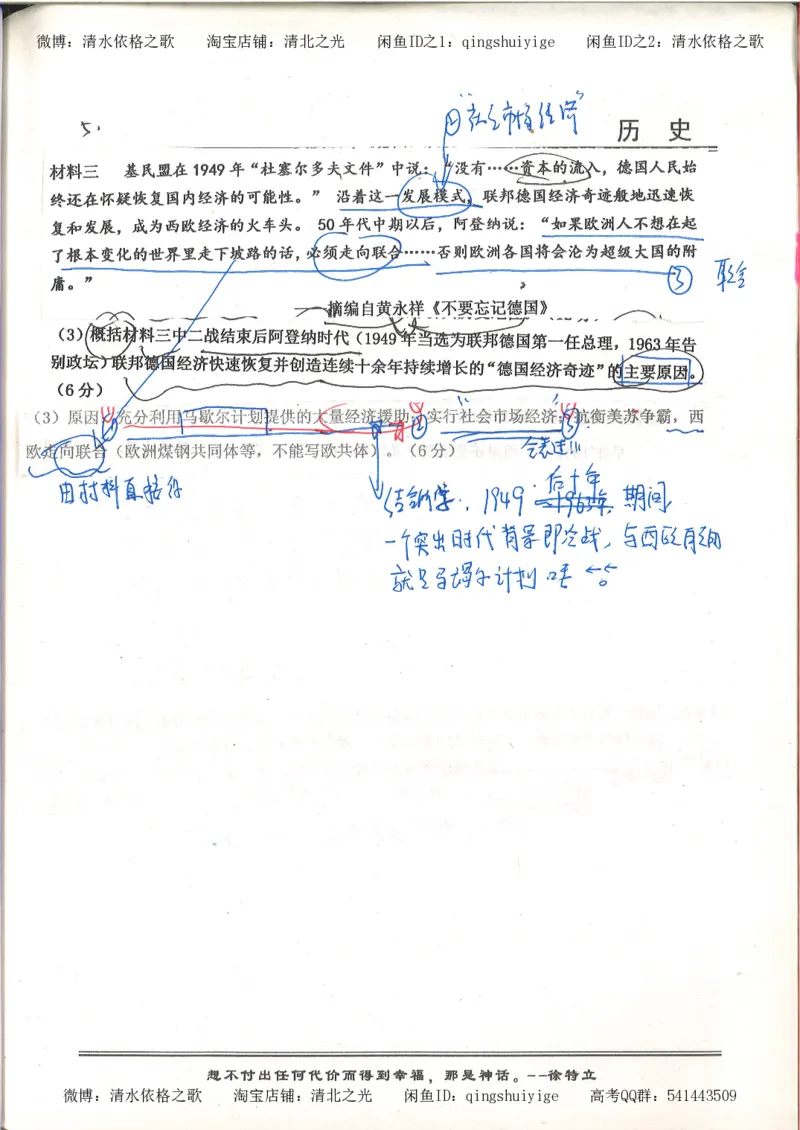 微博：清水依格之歌 淘宝店铺：清北之光 闲鱼ID之1：qingshuiyige 闲鱼ID之2：清水依格之歌
5.
②“社会市场经济”
历 史
材料三 基民盟在1949年“杜塞尔多夫文件”中说：“没有……资本的流入，德国人民始
终还在怀疑恢复国内经济的可能性。” 沿着这一发展模式，联邦德国经济奇迹般地迅速恢
复和发展，成为西欧经济的火车头。 50年代中期以后，阿登纳说：“如果欧洲人不想在起
了根本变化的世界里走下坡路的话，必须走向联合……否则欧洲各国将会沦为超级大国的附
庸。”
③ 联合
——摘编自黄永祥《不要忘记德国》
（3）概括材料三中二战结束后阿登纳时代（1949年当选为联邦德国第一任总理，1963年告
别政坛）联邦德国经济快速恢复并创造连续十余年持续增长的“德国经济奇迹”的主要原因。
（6分）
（3）原因：充分利用马歇尔计划提供的大量经济援助；实行社会市场经济；抗衡美苏争霸，西
欧走向联合（欧洲煤钢共同体等，不能写欧共体）。（6分）
会表述!!!
由材料直接得
结合所学，1949后十年期间
一个突出时代背景即冷战，与西欧有关的
就是马歇尔计划
想不付出任何代价而得到幸福，那是神话。--徐特立
微博：清水依格之歌 淘宝店铺：清北之光 闲鱼ID：qingshuiyige 高考QQ群：541443509